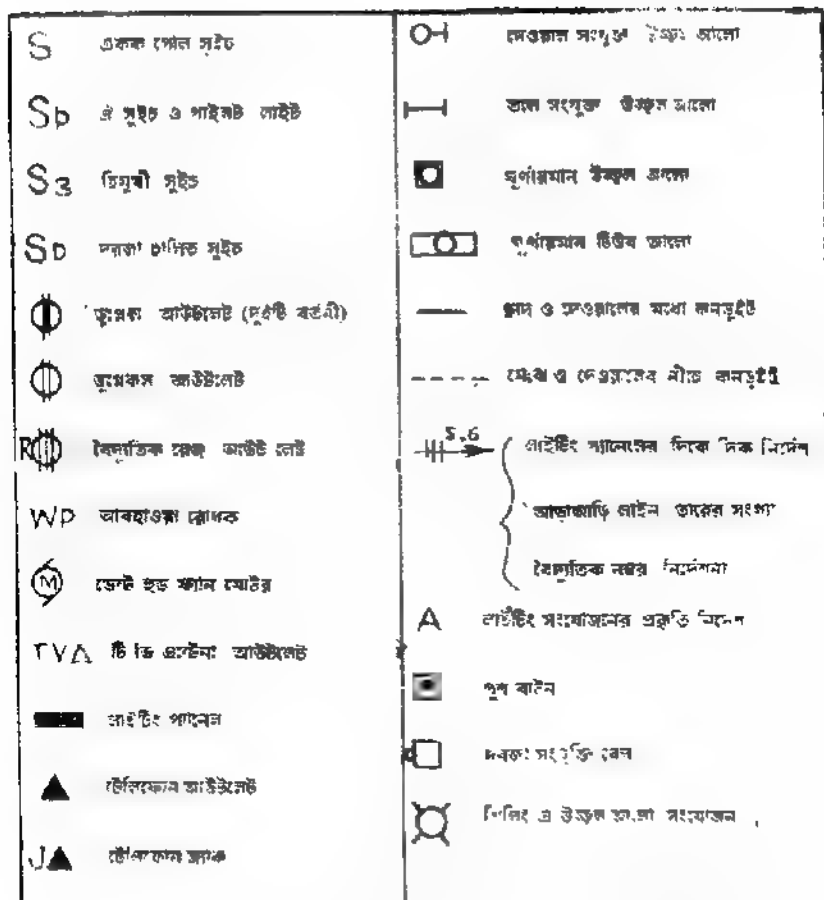 S একক পোল সুইচ
Sp ঐ সুইচ ও পাইলট লাইট
S3 ত্রিমুখী সুইচ
SD দরজা চালিত সুইচ
আউটলেট (দুইটি বর্তনী)
ডুপ্লেকস আউটলেট
R বৈদ্যুতিক রেঞ্জ আউট লেট
WP আবহাওয়া রোধক
M ভেন্ট হুড ফ্যান মোটর
TVA টি ভি এন্টেনা আউটলেট
লাইটিং প্যানেল
টেলিফোন আউটলেট
J টেলিফোন জ্যাক
দেওয়াল সংযুক্ত উজ্জ্বল আলো
সংযুক্ত উজ্জ্বল আলো
ঘূর্ণায়মান উজ্জ্বল আলো
ঘূর্ণায়মান টিউব আলো
ছাদ ও দেওয়ালের মধ্যে কনডুইট
মেঝে ও দেওয়ালের নীচে কনডুইট
5,6 লাইটিং প্যানেলের দিকে দিক নির্দেশ
আড়াআড়ি লাইন তারের সংখ্যা
বৈদ্যুতিক নম্বর নির্দেশনা
A লাইটিং সংযোজনের প্রকৃতি নির্দেশ
পুশ বাটন
দরজা সংযুক্তি বেল
সিলিং এ উজ্জ্বল আলো সংযোজন